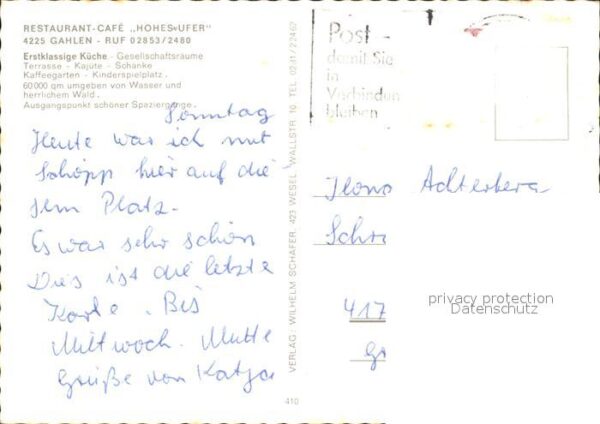 RESTAURANT-CAFÉ „HOHES-UFER"
4225 GAHLEN - RUF 02853/2480
Erstklassige Küche - Gesellschaftsräume
Terrasse - Kajüte - Schänke
Kaffeegarten - Kinderspielplatz.
60000 qm umgeben von Wasser und
herrlichem Wald.
Ausgangspunkt schöner Spaziergänge.
Sonntag
Heute war ich mit
Schöpp hier auf die
sem Platz.
Es war sehr schön
Dies ist die letzte
Karte. Bis
Mittwoch. Mutte
Grüße von Katja
VERLAG: WILHELM SCHÄFER, 423 WESEL, WALLSTR. 10 TEL. 0281/22462
410
Post -
damit Sie
in
Verbindung
bleiben
Ilona Achterberg
Schr
417
Ge
privacy protection
Datenschutz